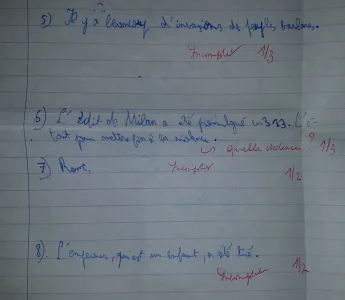 5) Il y a beaucoup d'invasions de peuples barbares.
Incomplet 1/3
6) L'édit de Milan a été promulgué en 313. L'é-
tait pour mettre fin à la violence.
quelle violence ? 1/3
7) Rome.
Incomplet 1/2
8) L'empereur, qui est un enfant, a été tué.
Incomplet 1/2